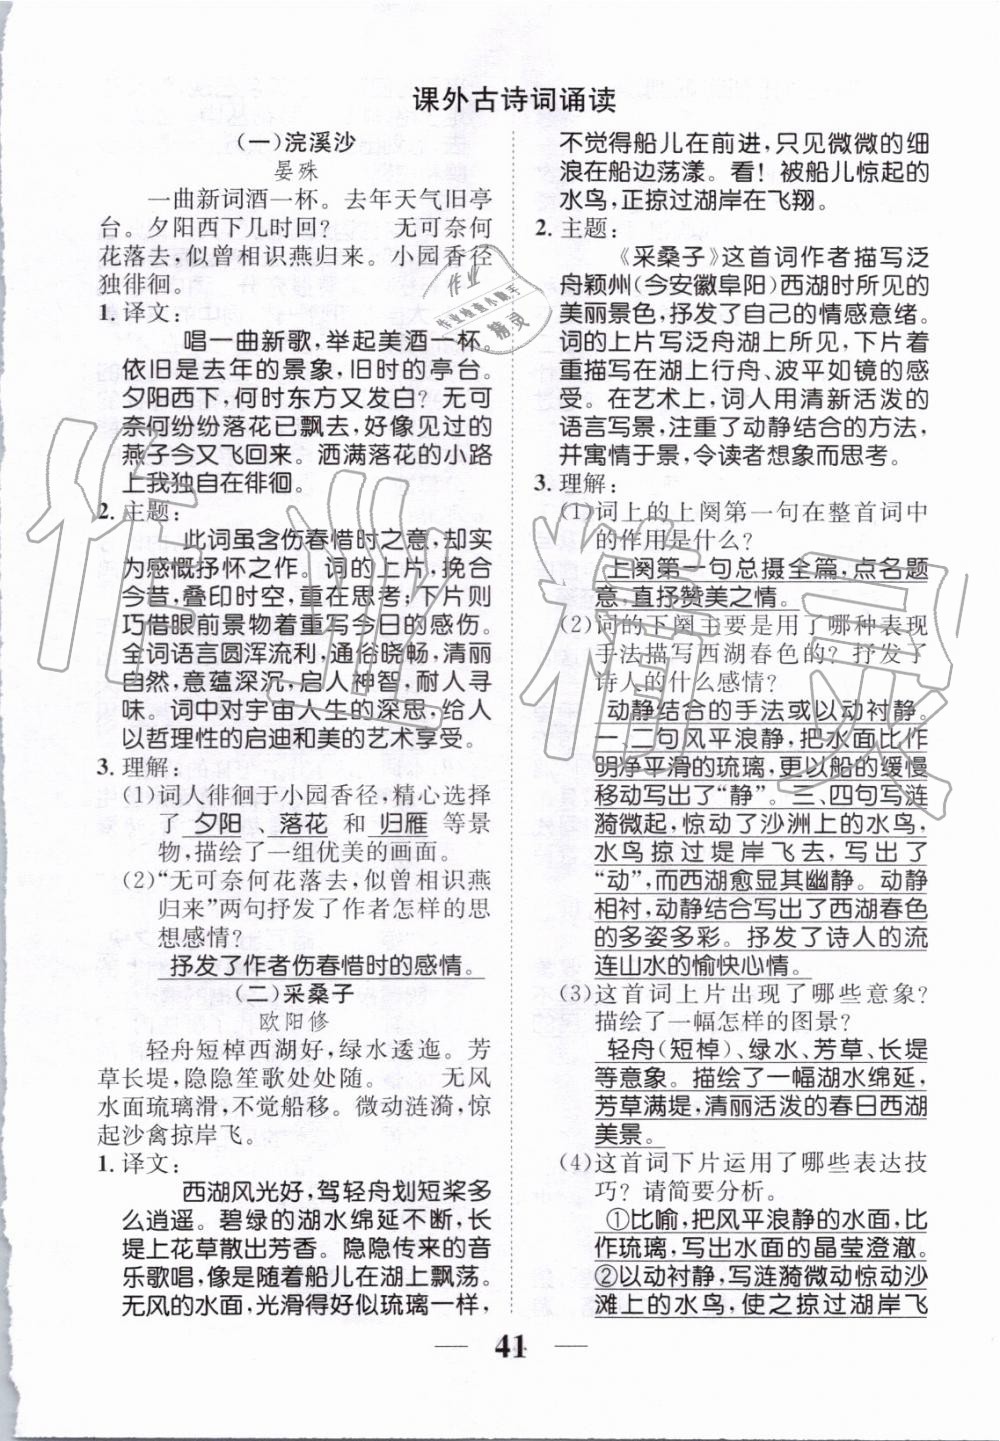 课外古诗词诵读
(一)浣溪沙
晏殊
一曲新词酒一杯。去年天气旧亭
台。夕阳西下几时回？ 无可奈何
花落去，似曾相识燕归来。小园香径
独徘徊。
1. 译文：
唱一曲新歌，举起美酒一杯。
依旧是去年的景象，旧时的亭台。
夕阳西下，何时东方又发白？无可
奈何纷纷落花已飘去，好像见过的
燕子今又飞回来。洒满落花的小路
上我独自在徘徊。
2. 主题：
此词虽含伤春惜时之意，却实
为感慨抒怀之作。词的上片，挽合
今昔，叠印时空，重在思考；下片则
巧借眼前景物着重写今日的感伤。
全词语言圆浑流利，通俗晓畅，清丽
自然，意蕴深沉，启人神智，耐人寻
味。词中对宇宙人生的深思，给人
以哲理性的启迪和美的艺术享受。
3. 理解：
(1)词人徘徊于小园香径，精心选择
了 夕阳 、落花 和 归雁 等景
物，描绘了一组优美的画面。
(2)“无可奈何花落去，似曾相识燕
归来”两句抒发了作者怎样的思
想感情？
抒发了作者伤春惜时的感情。
(二)采桑子
欧阳修
轻舟短棹西湖好，绿水逶迤。芳
草长堤，隐隐笙歌处处随。 无风
水面琉璃滑，不觉船移。微动涟漪，惊
起沙禽掠岸飞。
1. 译文：
西湖风光好，驾轻舟划短桨多
么逍遥。碧绿的湖水绵延不断，长
堤上花草散出芳香。隐隐传来的音
乐歌唱，像是随着船儿在湖上飘荡。
无风的水面，光滑得好似琉璃一样，
不觉得船儿在前进，只见微微的细
浪在船边荡漾。看！被船儿惊起的
水鸟，正掠过湖岸在飞翔。
2. 主题：
《采桑子》这首词作者描写泛
舟颍州(今安徽阜阳)西湖时所见的
美丽景色，抒发了自己的情感意绪。
词的上片写泛舟湖上所见，下片着
重描写在湖上行舟、波平如镜的感
受。在艺术上，词人用清新活泼的
语言写景，注重了动静结合的方法，
并寓情于景，令读者想象而思考。
3. 理解：
(1)词上的上阕第一句在整首词中
的作用是什么？
上阕第一句总摄全篇，点名题
意，直抒赞美之情。
(2)词的下阕主要是用了哪种表现
手法描写西湖春色的？抒发了
诗人的什么感情？
动静结合的手法或以动衬静。
一、二句风平浪静，把水面比作
明净平滑的琉璃，更以船的缓慢
移动写出了“静”。三、四句写涟
漪微起，惊动了沙洲上的水鸟，
水鸟掠过堤岸飞去，写出了
“动”，而西湖愈显其幽静。动静
相衬，动静结合写出了西湖春色
的多姿多彩。抒发了诗人的流
连山水的愉快心情。
(3)这首词上片出现了哪些意象？
描绘了一幅怎样的图景？
轻舟(短棹)、绿水、芳草、长堤
等意象。描绘了一幅湖水绵延，
芳草满堤，清丽活泼的春日西湖
美景。
(4)这首词下片运用了哪些表达技
巧？请简要分析。
①比喻，把风平浪静的水面，比
作琉璃，写出水面的晶莹澄澈。
②以动衬静，写涟漪微动惊动沙
滩上的水鸟，使之掠过湖岸飞
41
作业精灵